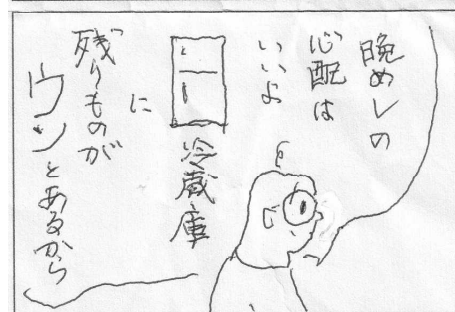 晩めしの
心配は
いいよ
冷蔵庫
に
残りものが
ウンとあるから